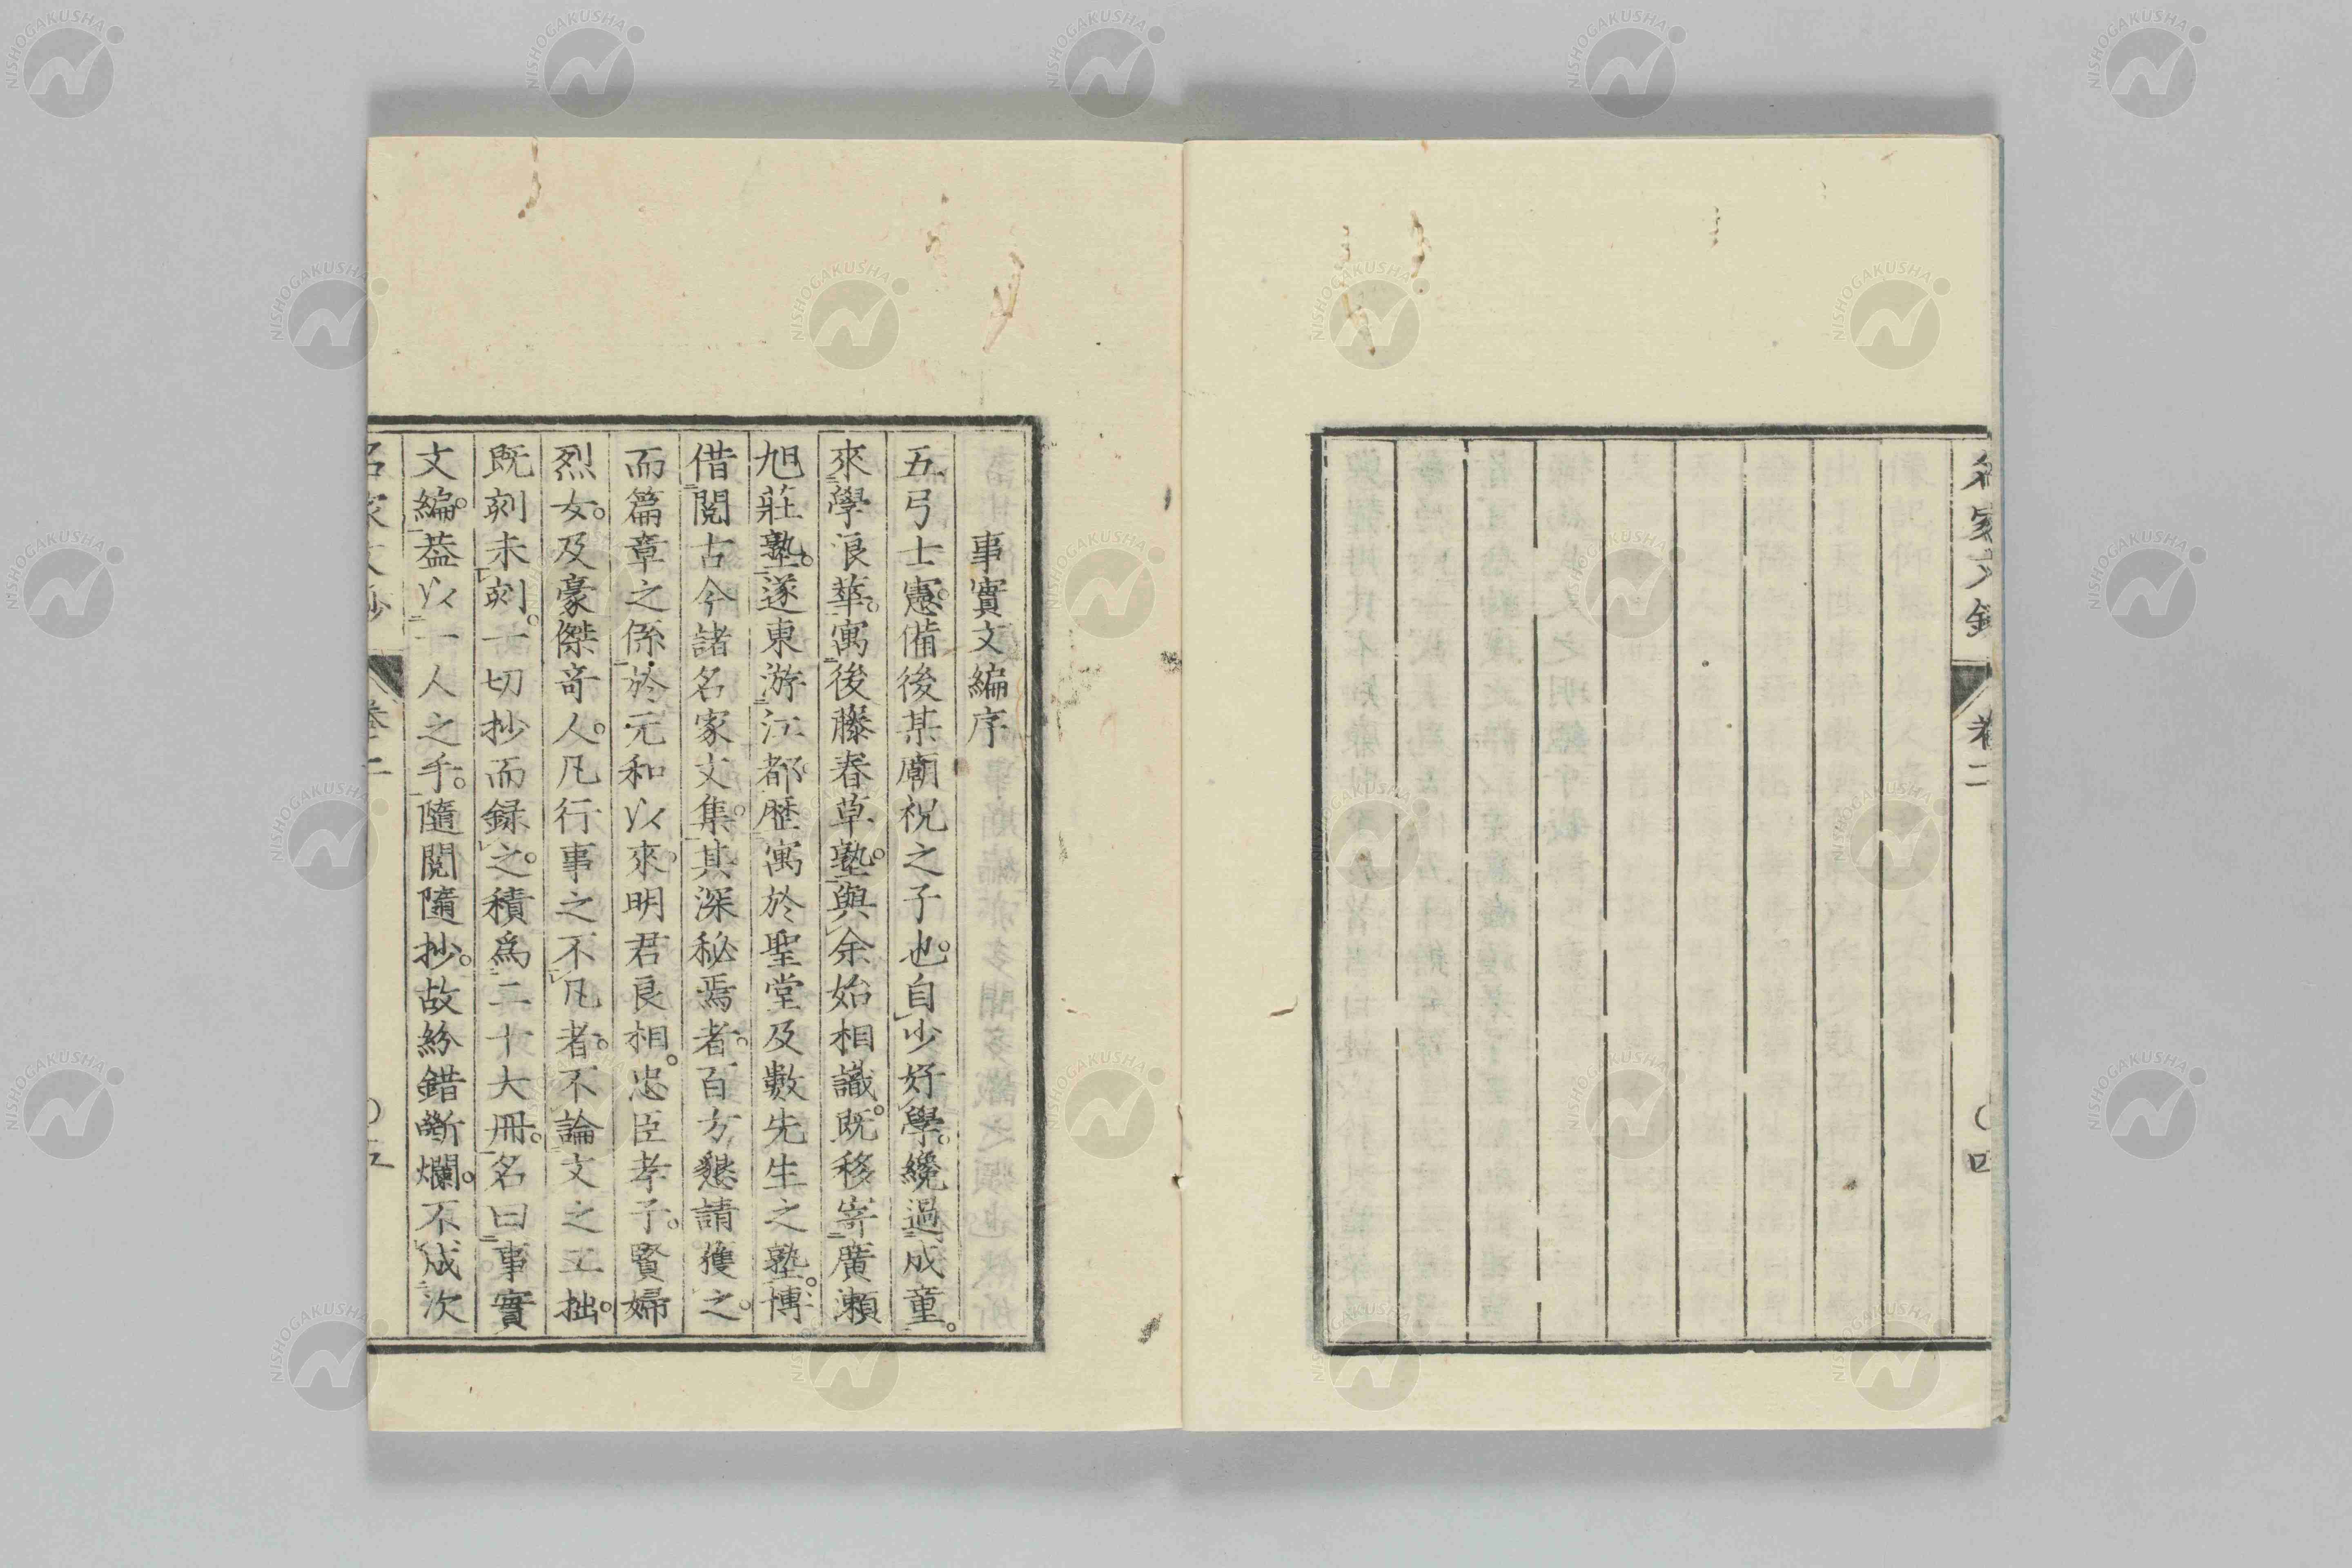 名家文鈔
卷二
四
事實文編序
五弓士憲。備後某廟祝之子也。自少好學。纔過成童。
來學浪華。寓後藤春草塾。與余始相識。既移寄廣瀨
旭莊塾。遂東游江都。歷寓於聖堂及數先生之塾。博
借閱古今諸名家文集。其深秘焉者。百方懇請獲之。
而篇章之係於元和以來。明君良相。忠臣孝子。賢婦
烈女。及豪傑奇人。凡行事之不凡者。不論文之工拙。
既刻未刻。一切抄而錄之。積爲二十大冊。名曰事實
文編。葢以一人之手。隨閱隨抄。故紛錯斷爛。不成次
名家文鈔
卷二
五
NISHOGAKUSHA